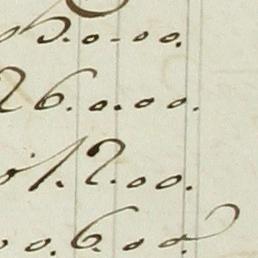 5.0.00.
26.0.00.
01.2.00.
00.6.00